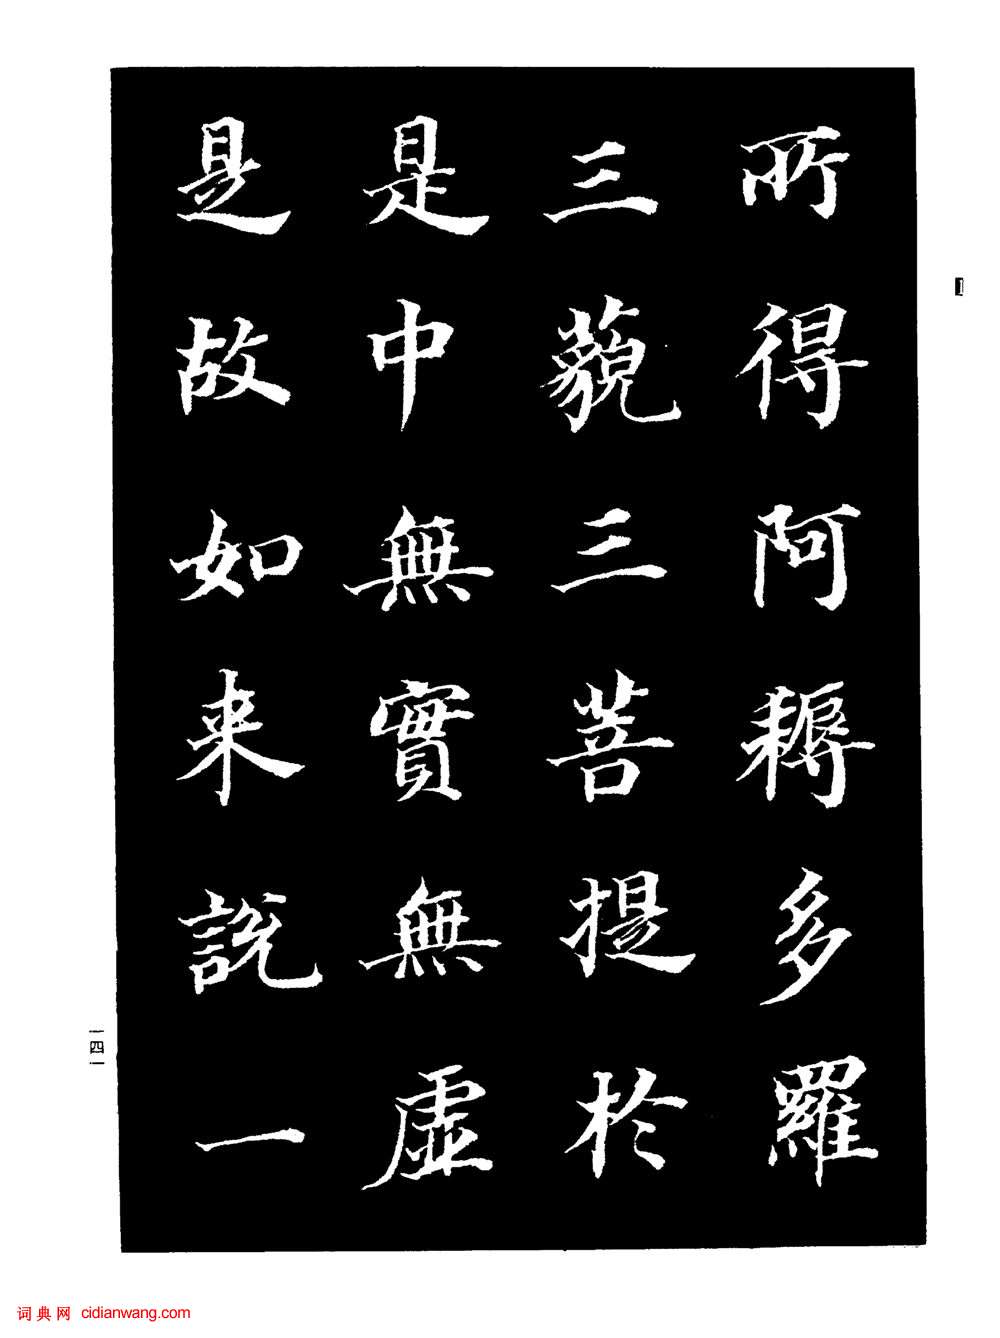 所得阿耨多羅
三藐三菩提於
是中無實無虛
是故如来說一
一四一
词典网 cidianwang.com